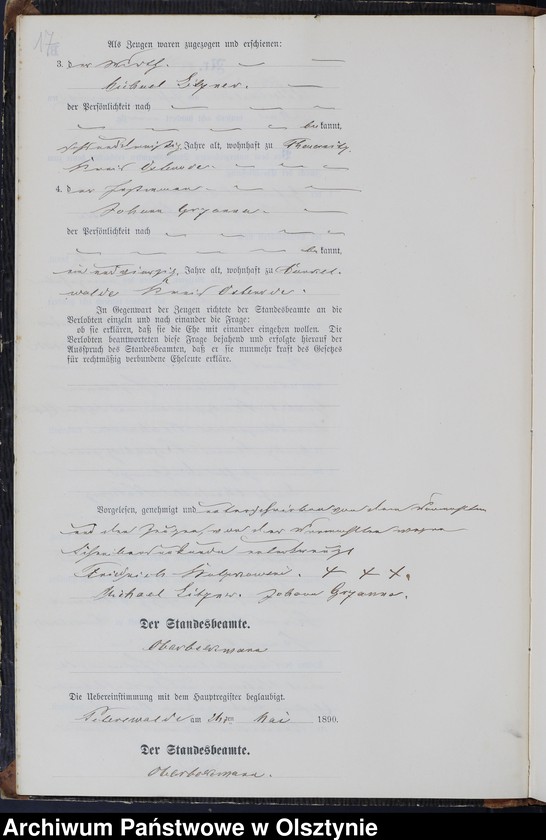 17
Als Zeugen waren zugezogen und erschienen:
3. der Wirth
Michael
der Persönlichkeit nach
bekannt,
Jahre alt, wohnhaft zu
Kreis Osterode
4. der
Johann Gryanna.
der Persönlichkeit nach
bekannt,
ein und vierzig Jahre alt, wohnhaft zu
walde Kreis Osterode.
In Gegenwart der Zeugen richtete der Standesbeamte an die
Verlobten einzeln und nach einander die Frage:
ob sie erklären, daß sie die Ehe mit einander eingehen wollen. Die
Verlobten beantworteten diese Frage bejahend und erfolgte hierauf der
Ausspruch des Standesbeamten, daß er sie nunmehr kraft des Gesetzes
für rechtmäßig verbundene Eheleute erkläre.
Vorgelesen, genehmigt und unterschrieben von dem Vermählten
und den Zeugen, von der Vermählten wegen
Schreibensunkunde unterkreuzt
Friedrich + + +.
Michael Johann Gryanna.
Der Standesbeamte.
Die Uebereinstimmung mit dem Hauptregister beglaubigt.
Peterswalde am 26ten Mai 1890.
Der Standesbeamte.
Archiwum Państwowe w Olsztynie